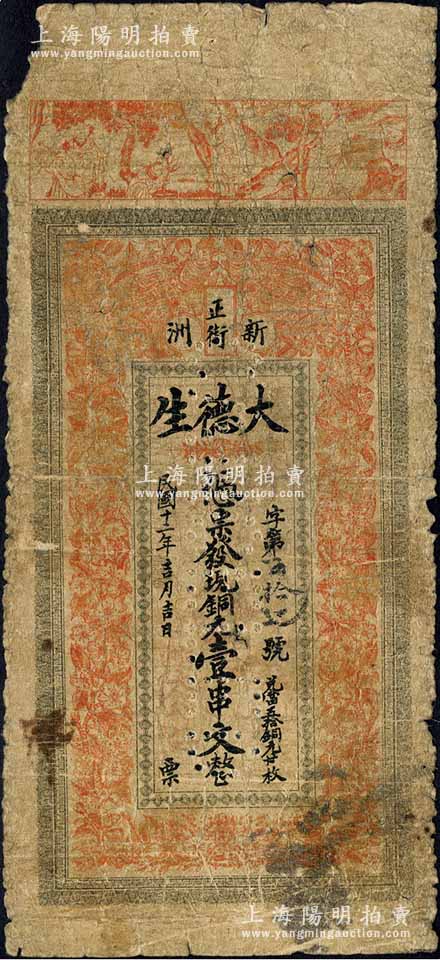 上海陽明拍賣
www.yangmingauction.com
新洲
正街
大德生
字第伍拾號
兌當五拾銅元廿枚
憑票發現銅元壹串文整
民國十一年吉月吉日
票
上海陽明拍賣
www.yangmingauction.com
上海陽明拍賣
www.yangmingauction.com